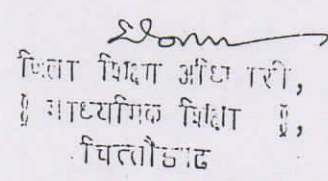 जिला शिक्षा अधिकारी,
[ माध्यमिक शिक्षा ],
चित्तौडगढ